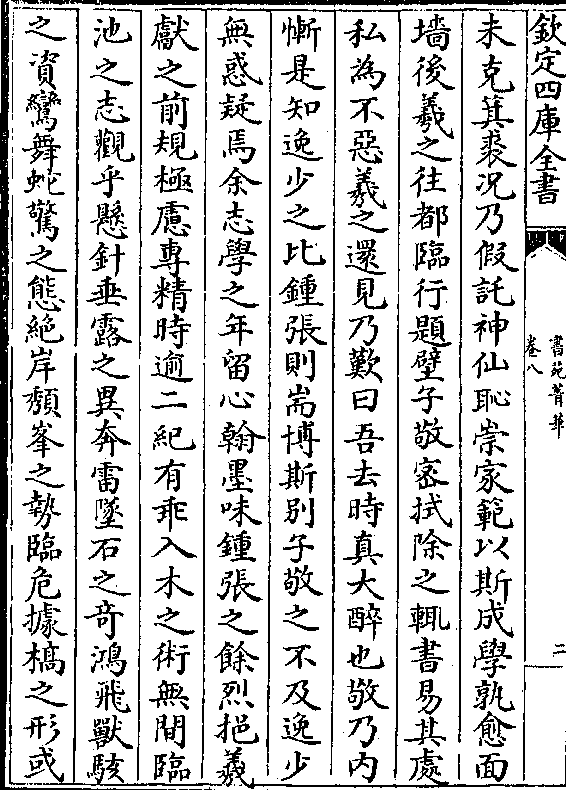 欽定四庫全書
書苑菁華
卷八
二
未克箕裘况乃假託神仙恥崇家範以斯成學孰愈面
墻後羲之往都臨行題壁子敬宻拭除之輙書易其處
私為不惡羲之還見乃歎曰吾去時真大醉也敬乃内
慚是知逸少之比鍾張則耑博斯别子敬之不及逸少
無惑疑焉余志學之年留心翰墨味鍾張之餘烈挹羲
獻之前規極慮専精時逾二紀有乖入木之術無間臨
池之志觀乎懸針垂露之異奔雷墜石之奇鴻飛獸駭
之資鸞舞蛇驚之態絶岸頽峯之勢臨危據槁之形或